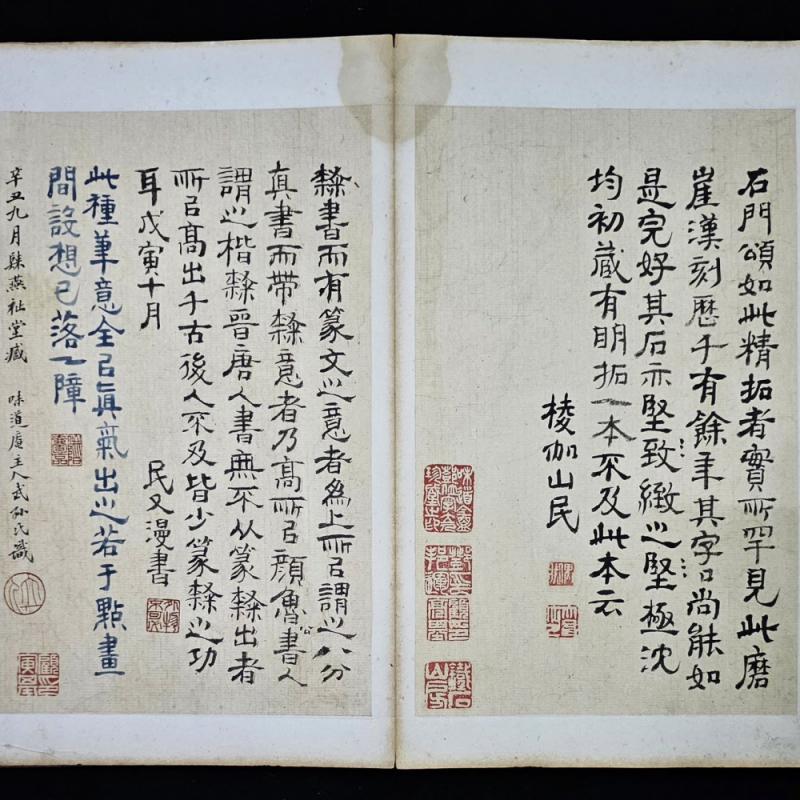 石門頌如此精拓者實所罕見此磨
崖漢刻歷千有餘年其字口尚能如
是完好其石亦堅致緻之堅極沈
均初藏有明拓一本不及此本云
棱伽山民
隸書而有篆文之意者為上所㠯謂之八分
真書而帶隸意者乃高所㠯顔魯公書人
謂之楷隸晉唐人書無不从篆隸出者
所㠯高出千古後人不及皆少篆隸之功
耳戊寅十月
民又漫書
此種筆意全㠯真氣出之若于點畫
間設想已落一障
辛丑九月縣燕祉堂臧
味道廎主人武孫氏識